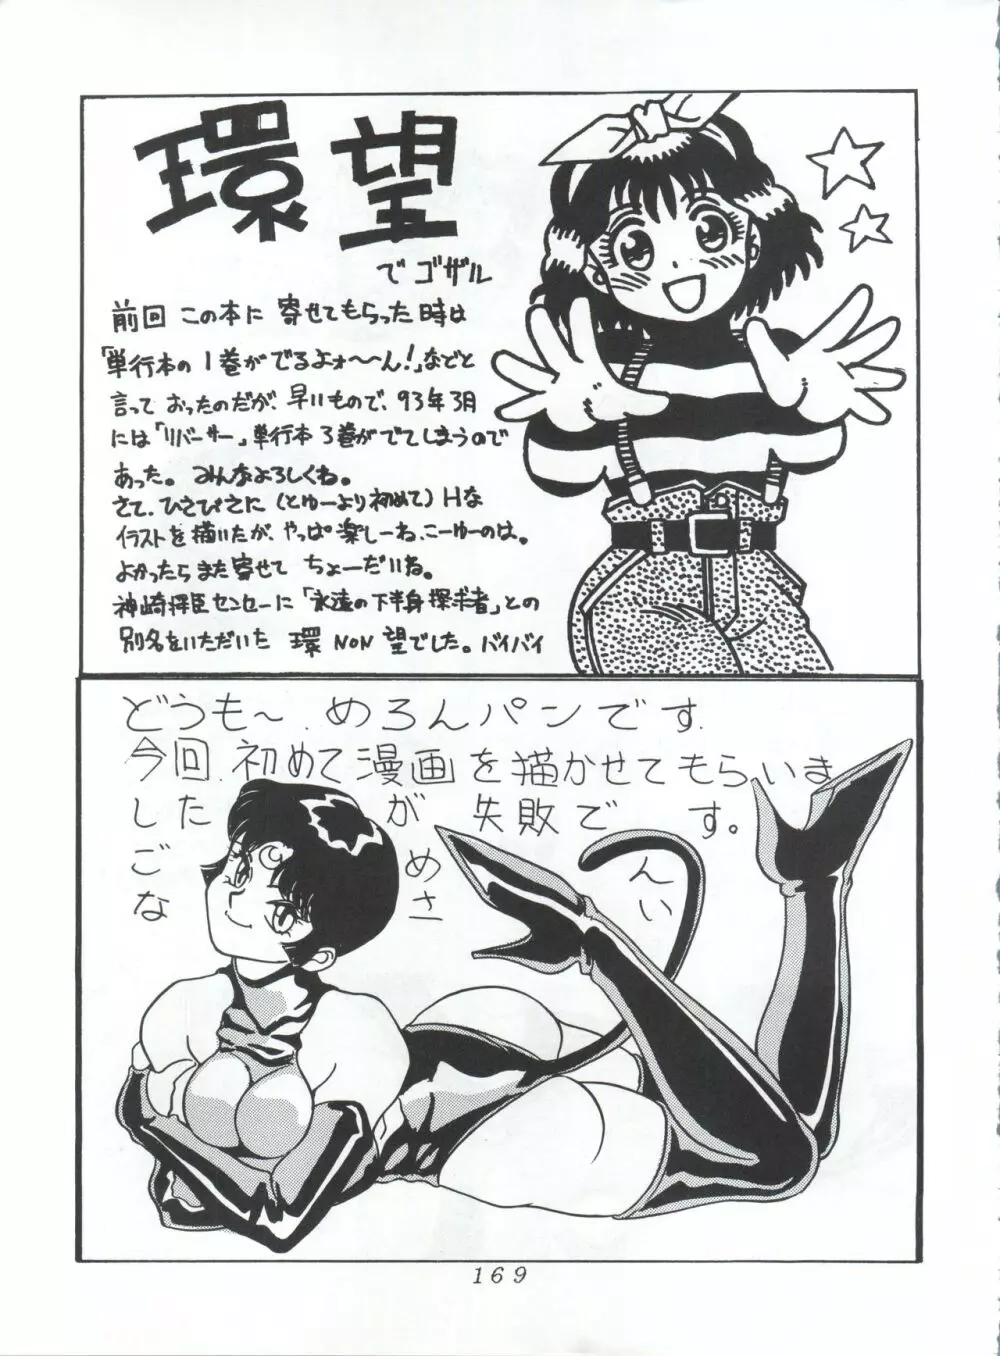 環望
でゴザル
前回 この本に 寄せてもらった時は
「単行本の1巻がでるよォ〜〜ん!」などと
言って おったのだが、早いもので、93年3月
には「リバーサー」単行本3巻がでてしまうので
あった。みんなよろしくね。
さて、ひさびさに (とゆーより初めて) Hな
イラストを描いたが、やっぱ楽しーね、こーゆーのは。
よかったら また寄せて ちょーだいね。
神崎将臣センセーに「永遠の下半身探求者」との
別名をいただいた 環 NON 望でした。バイバイ
どうも〜.めろんパンです.
今回.初めて漫画を描かせてもらいま
したが失敗です。
ごめんなさい
169